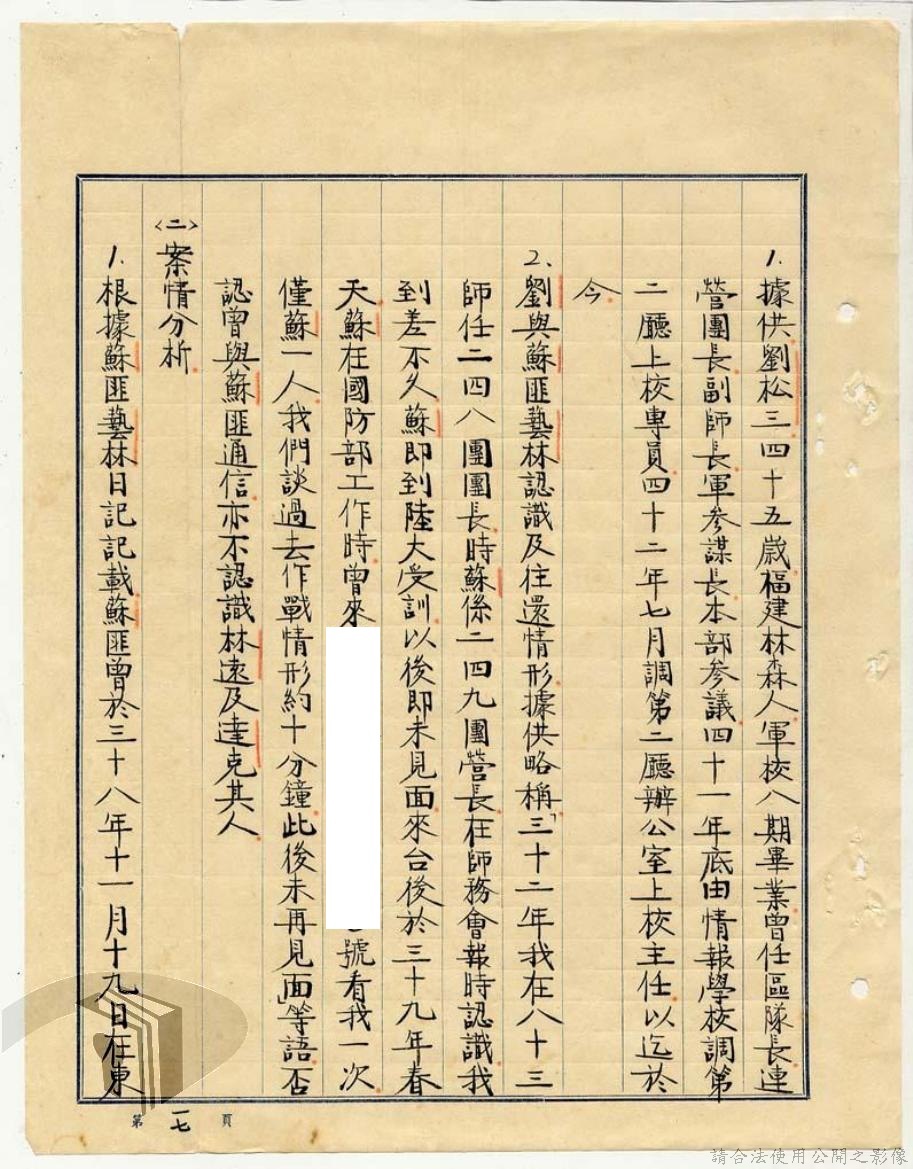 1.據供劉松三四十五歲福建林森人軍校八期畢業曾任區隊長連
營團長副師長軍参謀長本部参議四十一年底由情報學校調第
二廳上校專員四十二年七月調第二廳辦公室上校主任以迄於
今
2、劉與蘇匪藝林認識及往還情形據供略稱「三十二年我在八十三
師任二四八團團長時蘇係二四九團營長在師務會報時認識我
到差不久蘇即到陸大受訓以後即未見面來台後於三十九年春
天蘇在國防部工作時曾來 號看我一次
僅蘇一人我們談過去作戰情形約十分鐘此後未再見面」等語否
認曾與蘇匪通信亦不認識林遠及達克其人
〈二〉案情分析
1.根據蘇匪藝林日記記載蘇匪曾於三十八年十一月十九日在東
第一七頁
請合法使用公開之影像